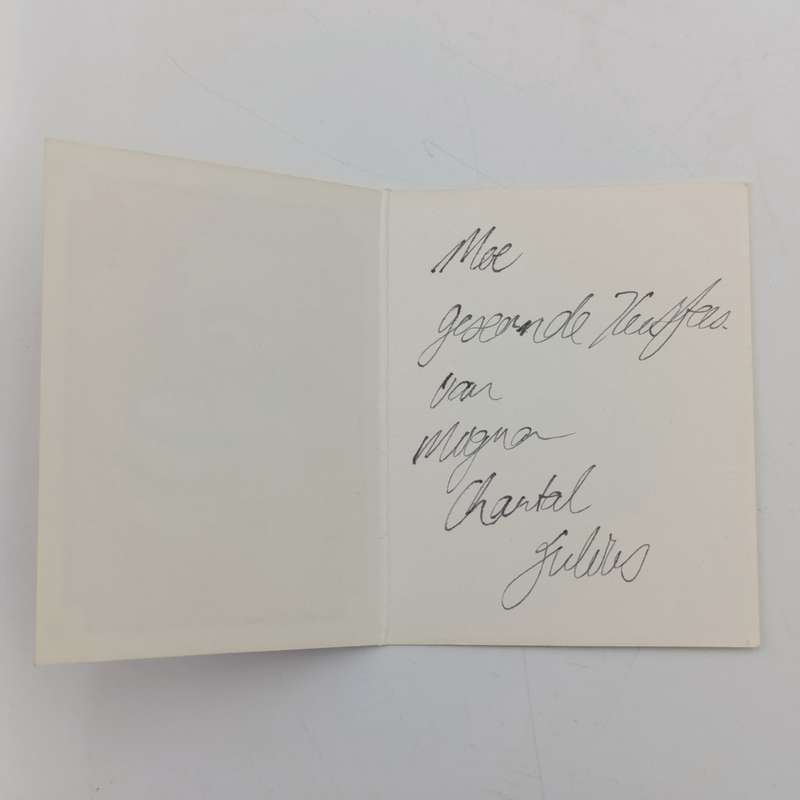 Moe
geseënde Kersfees.
van
Mignon
Chantal
Julius